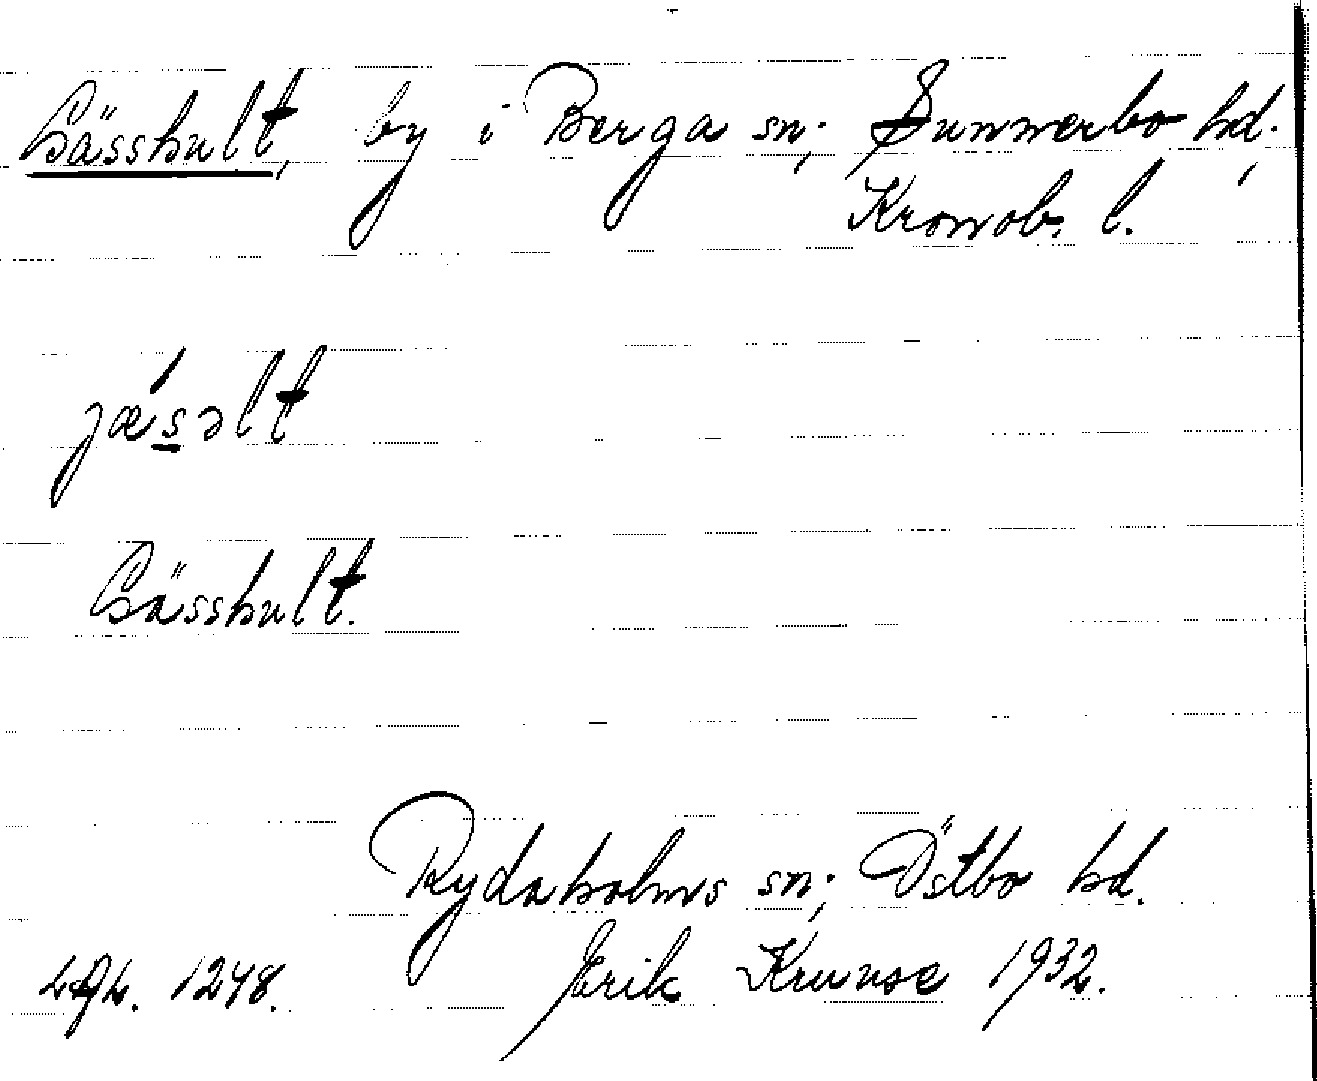 Gässhult, by i Berga sn; Sunnerbo hd.,
Kronob. l.
jǽs̲əlt
Gässhult.
Rydaholms sn; Östbo hd.
1248. Erik Kruuse 1932.